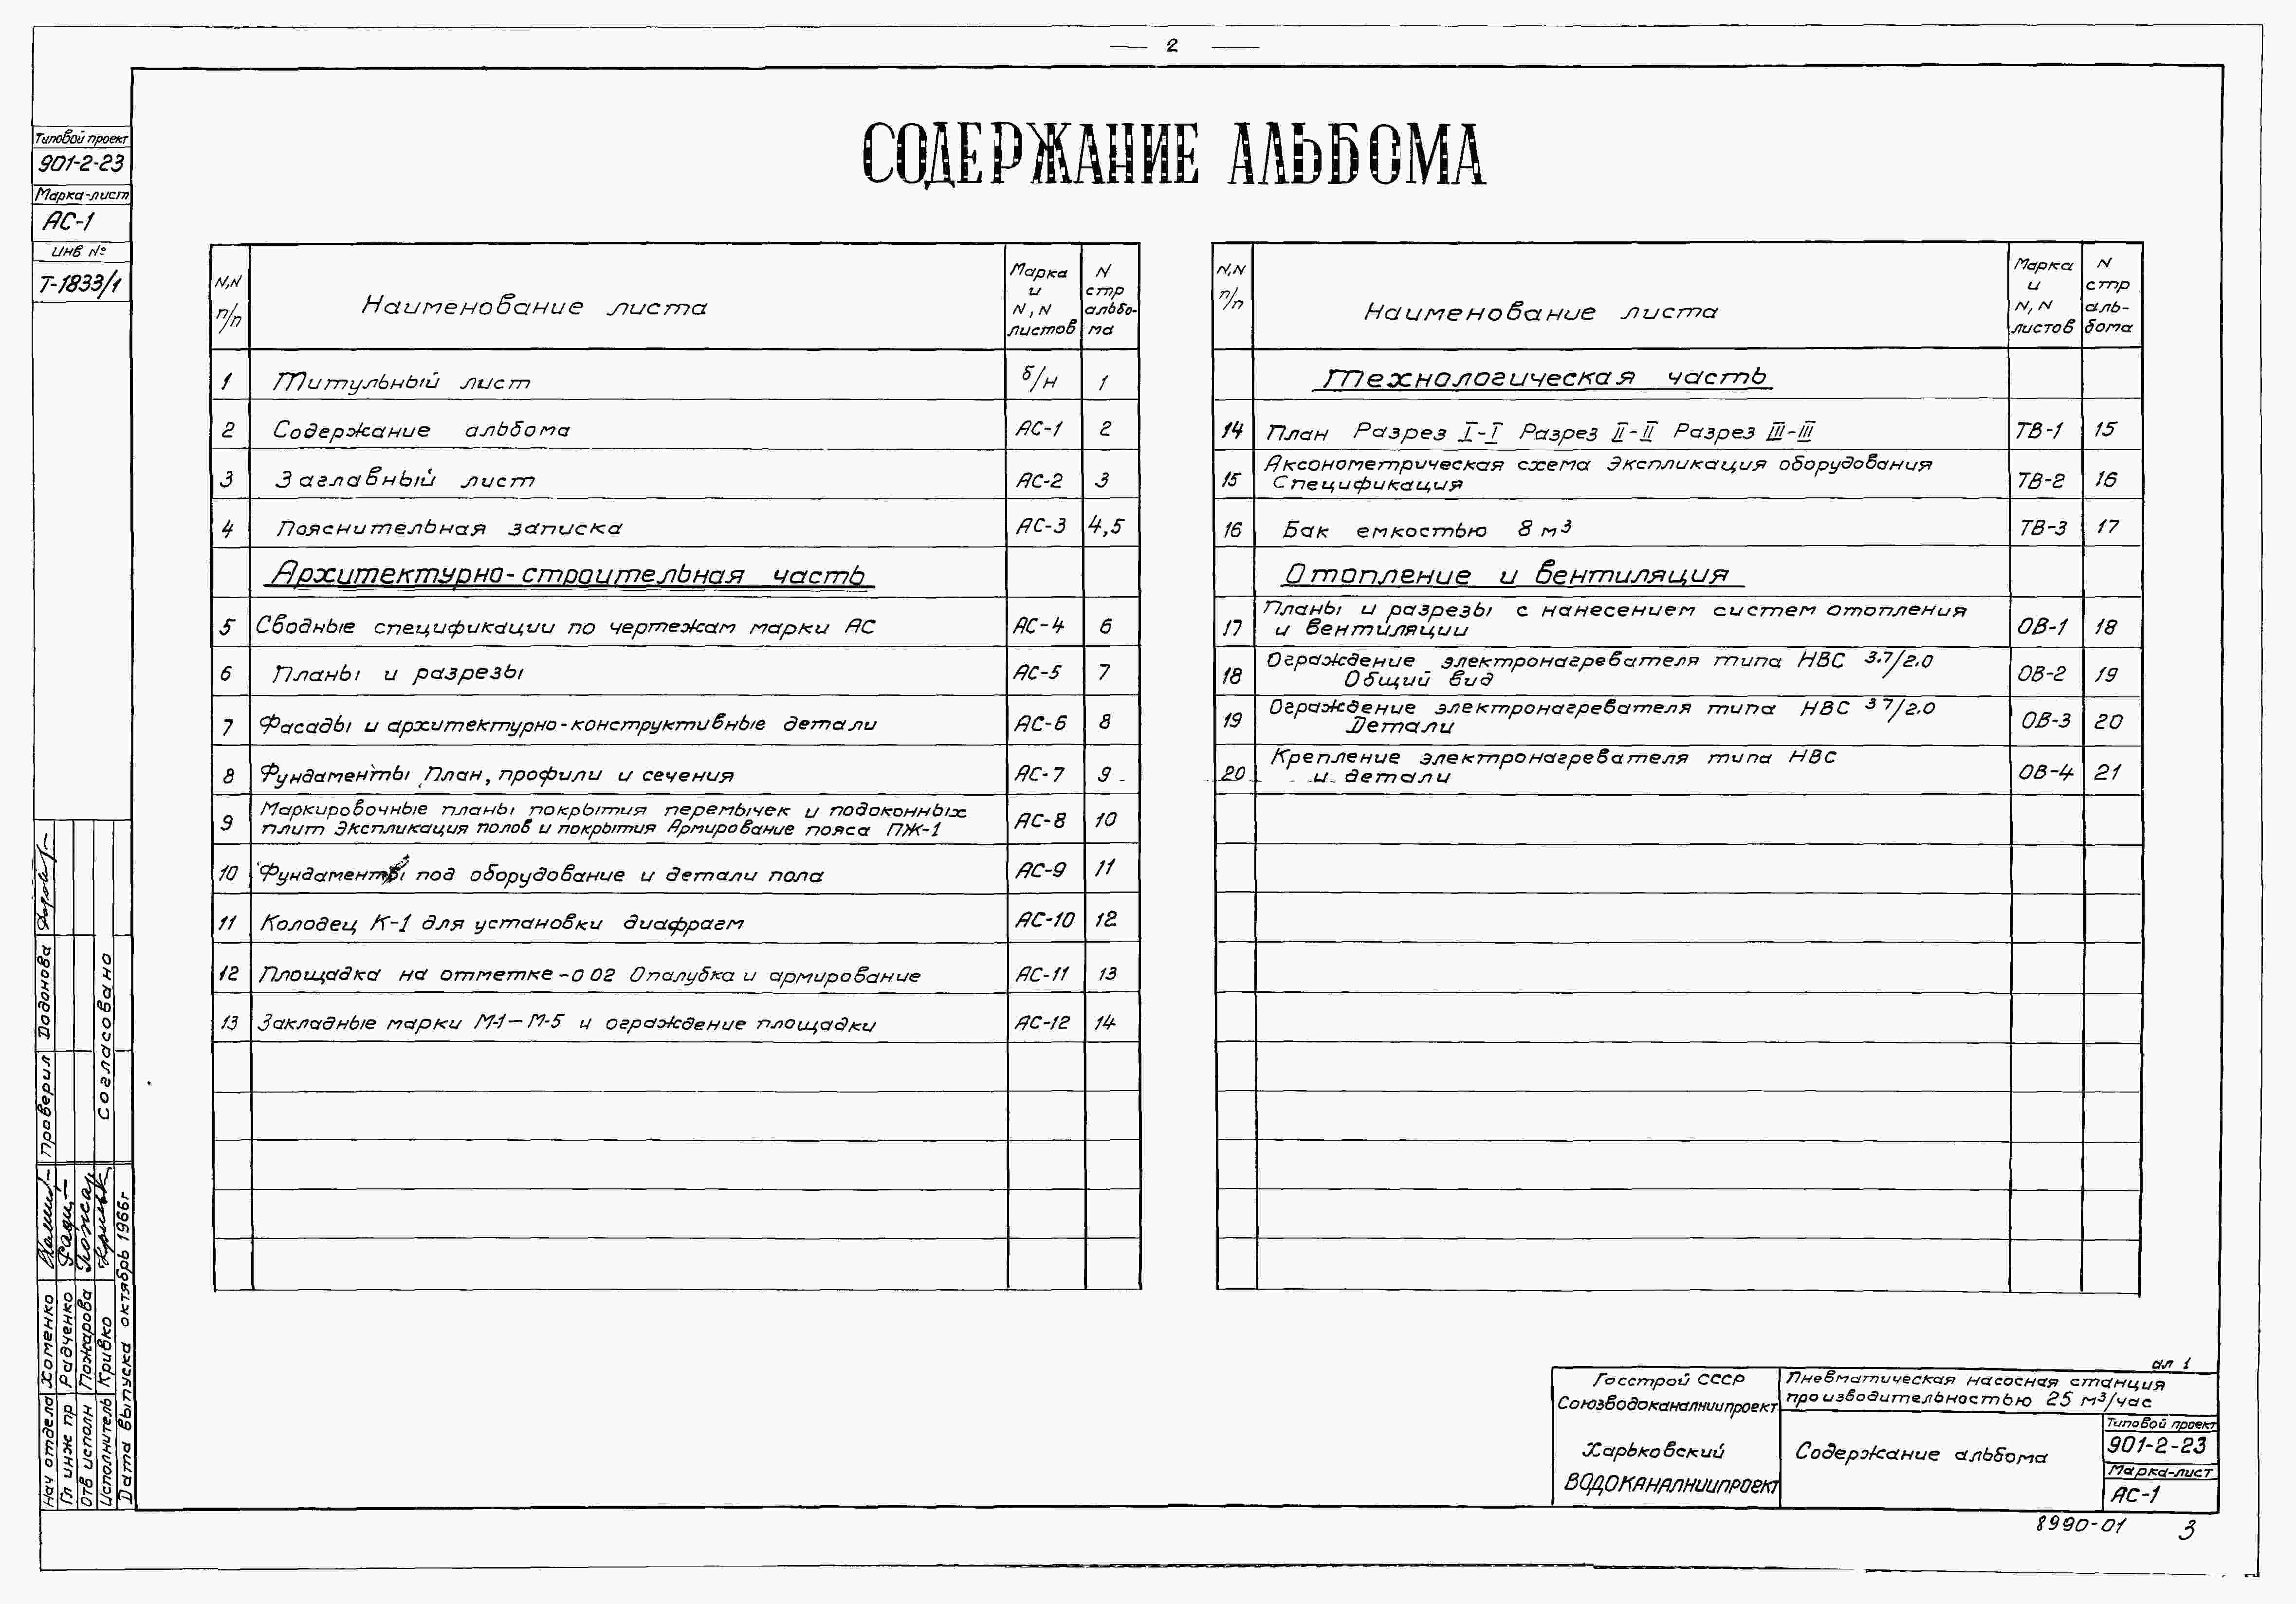 2
СОДЕРЖАНИЕ АЛЬБОМА
Типовой проект
901-2-23
Марка-лист
АС-1
инв №
Т-1833/1
N,N п/п | Наименование листа | Марка и N,N листов | N стр альбо-ма
1 Титульный лист б/н 1
2 Содержание альбома АС-1 2
3 Заглавный лист АС-2 3
4 Пояснительная записка АС-3 4,5
Архитектурно-строительная часть
5 Сводные спецификации по чертежам марки АС АС-4 6
6 Планы и разрезы АС-5 7
7 Фасады и архитектурно-конструктивные детали АС-6 8
8 Фундаменты План, профили и сечения АС-7 9
9 Маркировочные планы покрытия перемычек и подоконных
плит Экспликация полов и покрытия Армирование пояса ПЖ-1 АС-8 10
10 Фундаменты под оборудование и детали пола АС-9 11
11 Колодец К-1 для установки диафрагм АС-10 12
12 Площадка на отметке -0 02 Опалубка и армирование АС-11 13
13 Закладные марки М-1 – М-5 и ограждение площадки АС-12 14
N,N п/п | Наименование листа | Марка и N,N листов | N стр аль-бома
Технологическая часть
14 План Разрез I-I Разрез II-II Разрез III-III ТВ-1 15
15 Аксонометрическая схема Экспликация оборудования
Спецификация ТВ-2 16
16 Бак емкостью 8 м³ ТВ-3 17
Отопление и вентиляция
17 Планы и разрезы с нанесением систем отопления
и вентиляции ОВ-1 18
18 Ограждение электронагревателя типа НВС 3.7/2.0
Общий вид ОВ-2 19
19 Ограждение электронагревателя типа НВС 3 7/2.0
Детали ОВ-3 20
20 Крепление электронагревателя типа НВС
и детали ОВ-4 21
Проверил Додонова
Согласовано
Нач отдела Хоменко
Гл инж пр Радченко
Отв исполн Пожарова
Исполнитель Кривко
Дата выпуска октябрь 1966г
ал 1
Госстрой СССР
Союзводоканалниипроект
Харьковский
ВОДОКАНАЛНИИПРОЕКТ
Пневматическая насосная станция
производительностью 25 м³/час
Содержание альбома
Типовой проект
901-2-23
Марка-лист
АС-1
8990-01 3